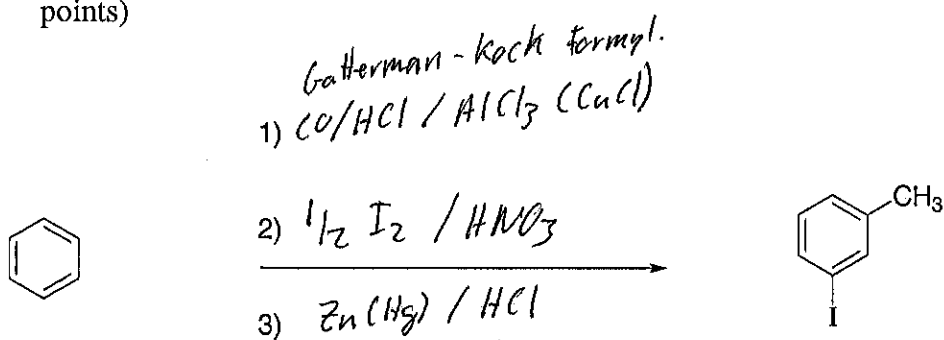 points)
Gatterman - Kock formyl.
1) CO/HCl / AlCl3 (CuCl)
2) 1/2 I2 / HNO3
3) Zn(Hg) / HCl
CH3
I